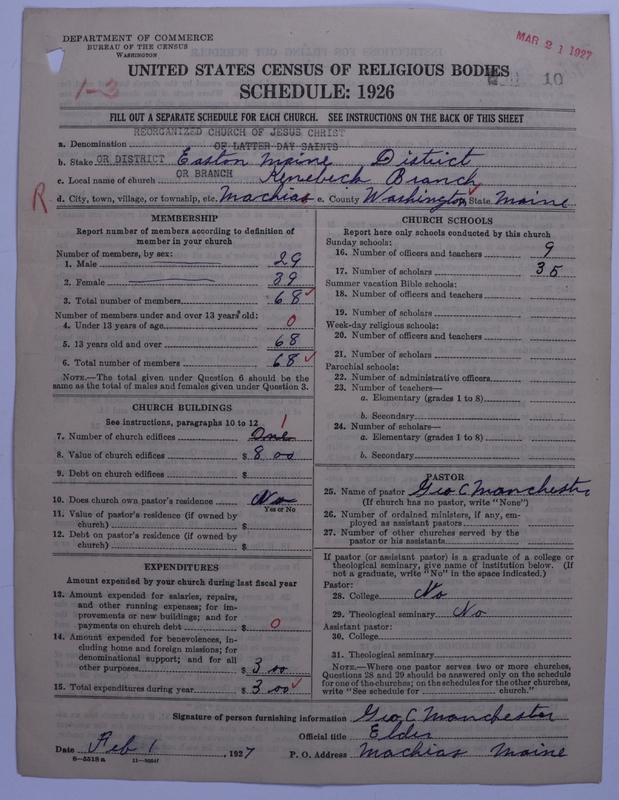 DEPARTMENT OF COMMERCE
BUREAU OF THE CENSUS
WASHINGTON
MAR 21 1927
1-3
UNITED STATES CENSUS OF RELIGIOUS BODIES
10
SCHEDULE: 1926
FILL OUT A SEPARATE SCHEDULE FOR EACH CHURCH. SEE INSTRUCTIONS ON THE BACK OF THIS SHEET
REORGANIZED CHURCH OF JESUS CHRIST
a. Denomination OF LATTER DAY SAINTS
b. Stake OR DISTRICT Easton Maine District
OR BRANCH
c. Local name of church Kenebeck Branch
R d. City, town, village, or township, etc. Machias e. County Washington State Maine
MEMBERSHIP
Report number of members according to definition of
member in your church
Number of members, by sex:
1. Male 29
2. Female 39
3. Total number of members 68
Number of members under and over 13 years old:
4. Under 13 years of age 0
5. 13 years old and over 68
6. Total number of members 68
NOTE.—The total given under Question 6 should be the
same as the total of males and females given under Question 3.
CHURCH BUILDINGS
See instructions, paragraphs 10 to 12
1
7. Number of church edifices One
8. Value of church edifices $ 8 00
9. Debt on church edifices $
10. Does church own pastor's residence No
Yes or No
11. Value of pastor's residence (if owned by
church) $
12. Debt on pastor's residence (if owned by
church) $
EXPENDITURES
Amount expended by your church during last fiscal year
13. Amount expended for salaries, repairs,
and other running expenses; for im-
provements or new buildings; and for
payments on church debt $ 0
14. Amount expended for benevolences, in-
cluding home and foreign missions; for
denominational support; and for all
other purposes $ 3 00
15. Total expenditures during year $ 3 00
CHURCH SCHOOLS
Report here only schools conducted by this church
Sunday schools:
16. Number of officers and teachers 9
17. Number of scholars 35
Summer vacation Bible schools:
18. Number of officers and teachers
19. Number of scholars
Week-day religious schools:
20. Number of officers and teachers
21. Number of scholars
Parochial schools:
22. Number of administrative officers
23. Number of teachers—
a. Elementary (grades 1 to 8)
b. Secondary
24. Number of scholars—
a. Elementary (grades 1 to 8)
b. Secondary
PASTOR
25. Name of pastor Geo C Manchester
(If church has no pastor, write "None")
26. Number of ordained ministers, if any, em-
ployed as assistant pastors
27. Number of other churches served by the
pastor or his assistants
If pastor (or assistant pastor) is a graduate of a college or
theological seminary, give name of institution below. (If
not a graduate, write "No" in the space indicated.)
Pastor:
28. College No
29. Theological seminary No
Assistant pastor:
30. College
31. Theological seminary
NOTE.—Where one pastor serves two or more churches,
Questions 28 and 29 should be answered only on the schedule
for one of the churches; on the schedules for the other churches,
write "See schedule for church."
Signature of person furnishing information Geo C Manchester
Official title Elder
Date Feb 1, 1927 P. O. Address Machias Maine